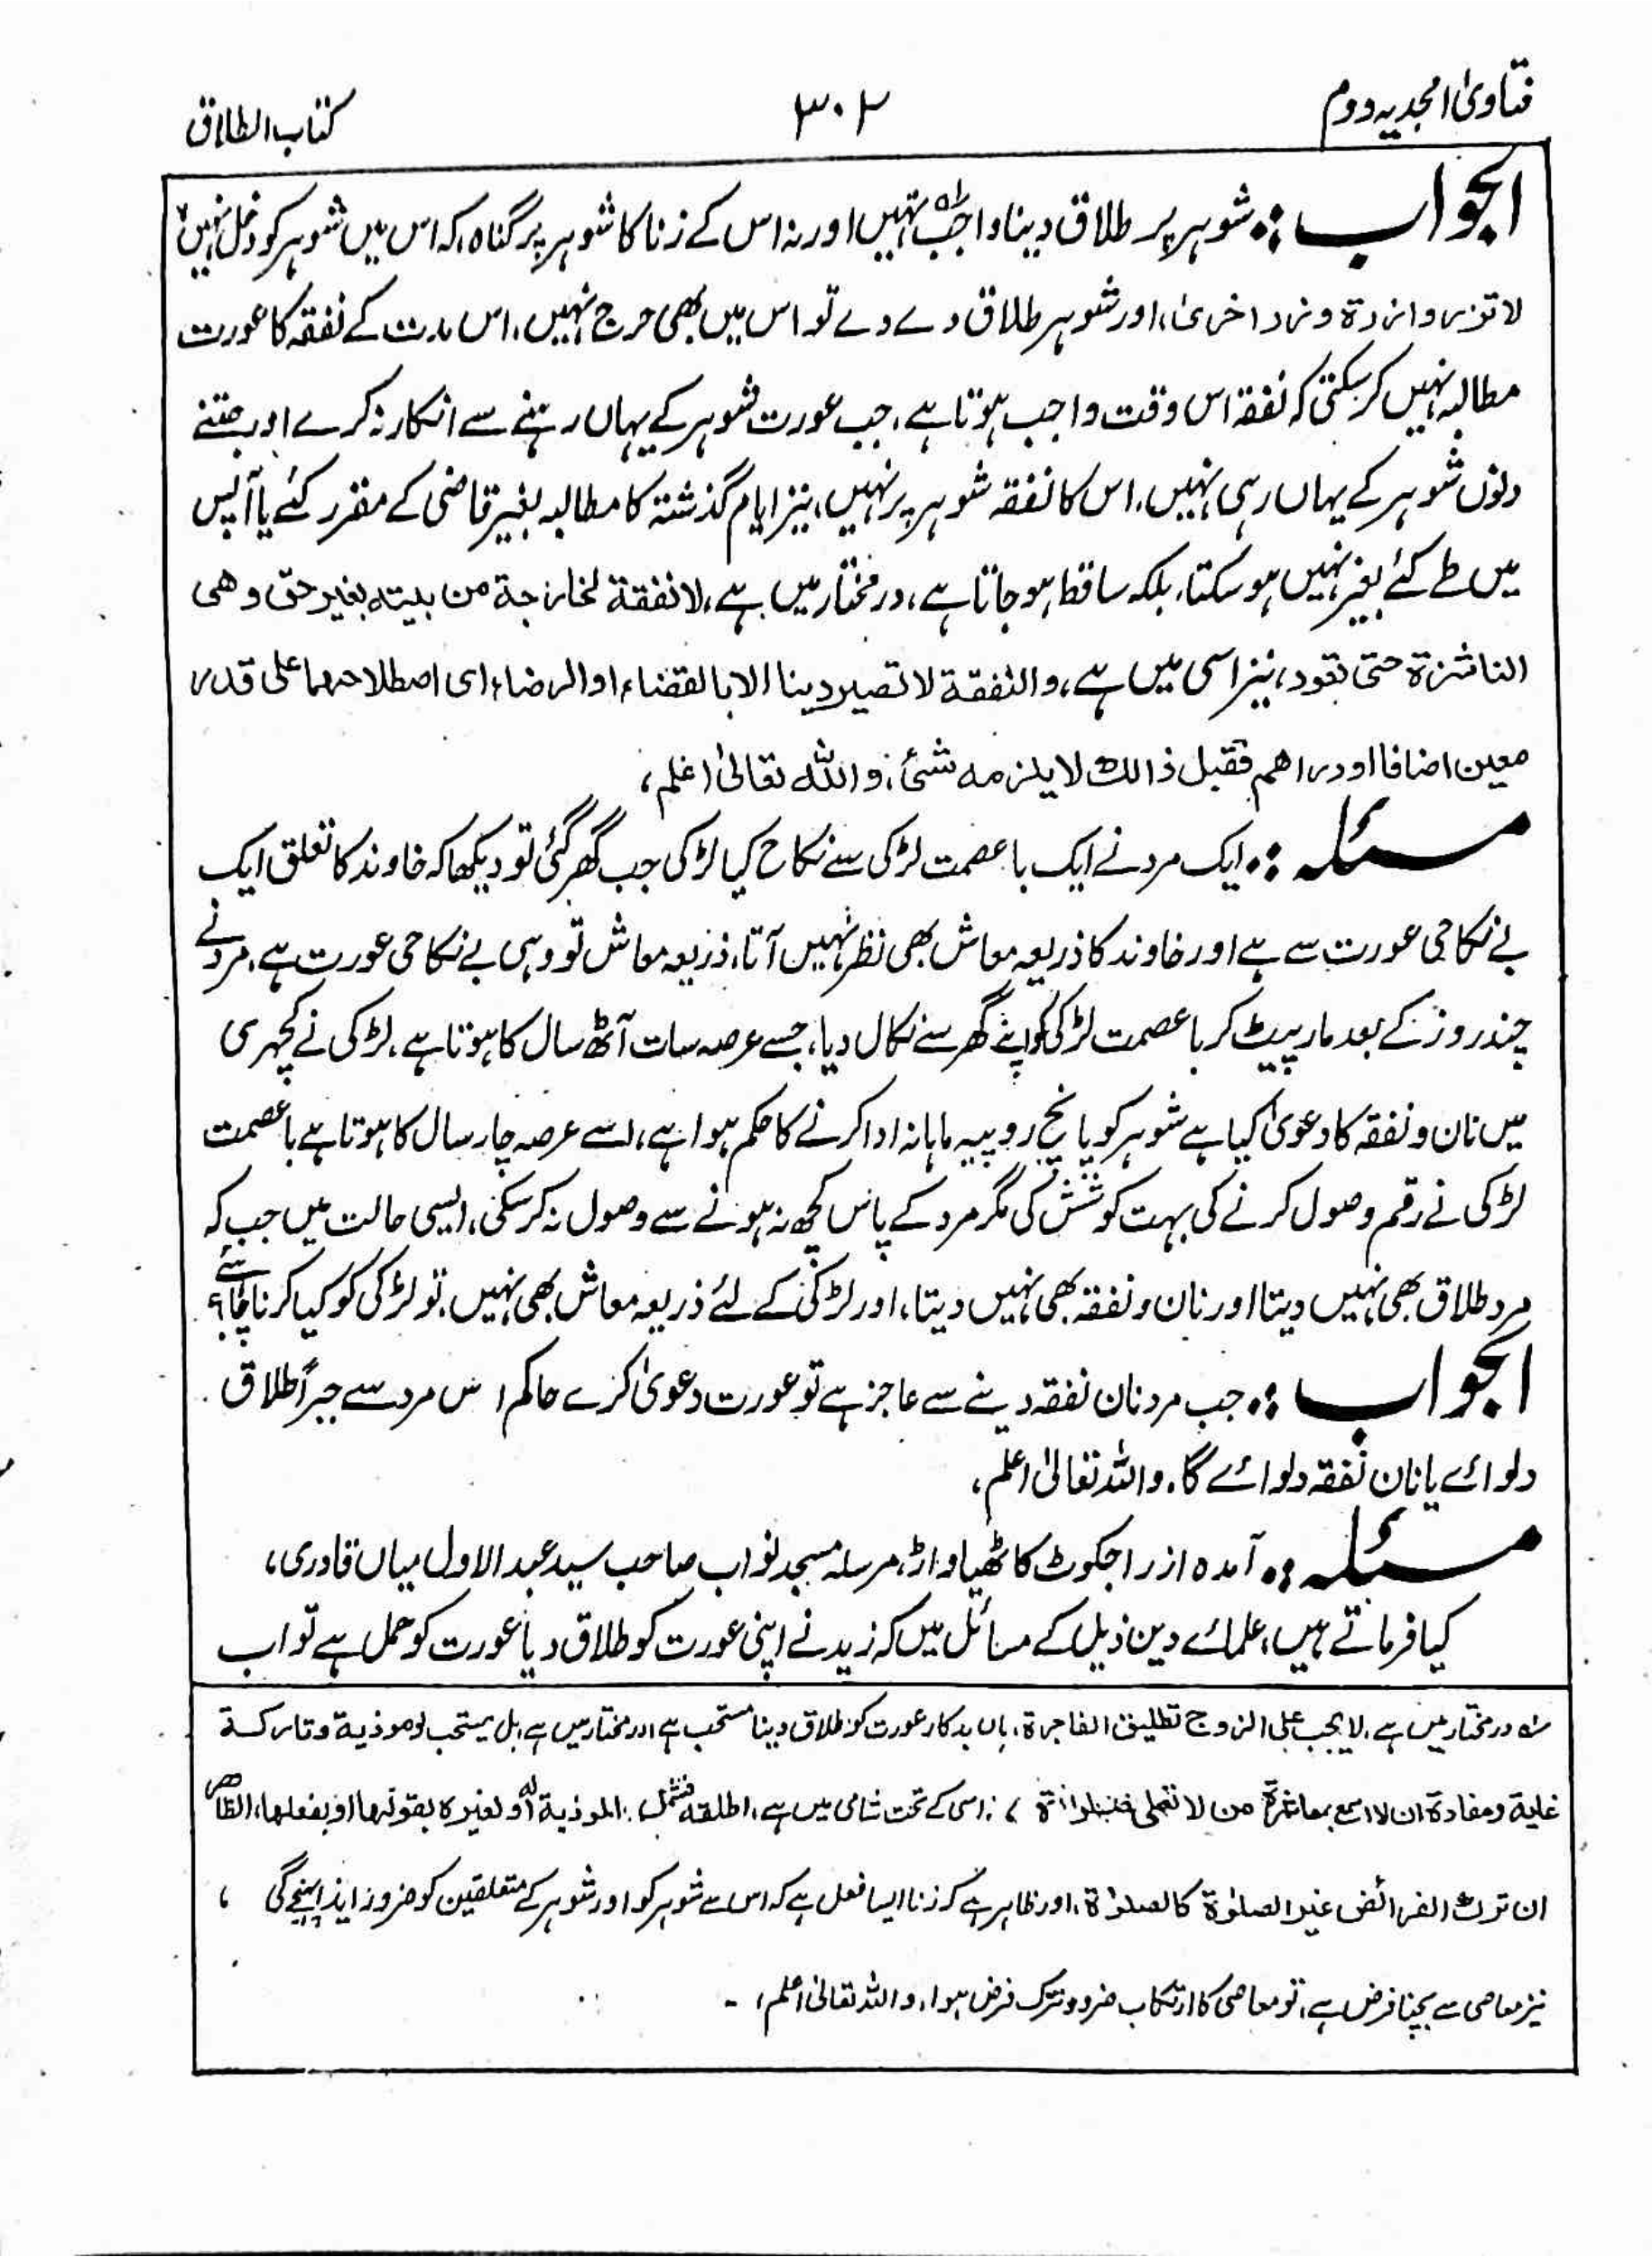 فتاویٰ امجدیہ دوم
۳۰۲
کتاب الطلاق
الجواب :۔ شوہر پر طلاق دینا واجب نہیں اور نہ اس کے زنا کا شوہر پر گناہ، کہ اس میں شوہر کو دخل نہیں،
لا تزر وازرۃ وزر اخریٰ، اور شوہر طلاق دے دے تو اس میں بھی حرج نہیں، اس مدت کے نفقہ کا عورت
مطالبہ نہیں کر سکتی کہ نفقہ اس وقت واجب ہوتا ہے، جب عورت شوہر کے یہاں رہنے سے انکار نہ کرے اور جتنے
دنوں شوہر کے یہاں رہی نہیں، اس کا نفقہ شوہر پر نہیں، نیز ایام گذشتہ کا مطالبہ بغیر قاضی کے مقرر کئے یا آپس
میں طے کئے بغیر نہیں ہو سکتا، بلکہ ساقط ہو جاتا ہے، درمختار میں ہے، لا نفقة لخارجة من بیته بغیر حق وهی
الناشزة حتی تعود، نیز اسی میں ہے، والنفقة لا تصیر دینا الا بالقضاء او الرضاء ای اصطلاحهما علی قدر
معین اضافا او دراهم فقبل ذالك لا یلزمه شئ، والله تعالیٰ اعلم،
مسئلہ :۔ ایک مرد نے ایک باعصمت لڑکی سے نکاح کیا لڑکی جب گھر گئی تو دیکھا کہ خاوند کا تعلق ایک
بے نکاحی عورت سے ہے اور خاوند کا ذریعہ معاش بھی نظر نہیں آتا، ذریعہ معاش تو وہی بے نکاحی عورت ہے، مرد نے
چند روز کے بعد مار پیٹ کر باعصمت لڑکی کو اپنے گھر سے نکال دیا، جسے عرصہ سات آٹھ سال کا ہوتا ہے، لڑکی نے کچہری
میں نان و نفقہ کا دعویٰ کیا ہے شوہر کو پانچ روپیہ ماہانہ ادا کرنے کا حکم ہوا ہے، اسے عرصہ چار سال کا ہوتا ہے باعصمت
لڑکی نے رقم وصول کرنے کی بہت کوشش کی مگر مرد کے پاس کچھ نہ ہونے سے وصول نہ کر سکی، ایسی حالت میں جب کہ
مرد طلاق بھی نہیں دیتا اور نان و نفقہ بھی نہیں دیتا، اور لڑکی کے لئے ذریعہ معاش بھی نہیں، تو لڑکی کو کیا کرنا چاہئے؟
الجواب :۔ جب مرد نان نفقہ دینے سے عاجز ہے تو عورت دعویٰ کرے حاکم اس مرد سے جبراً طلاق
دلوائے یا نان نفقہ دلوائے گا، واللہ تعالیٰ اعلم،
مسئلہ :۔ آمدہ از راجکوٹ کاٹھیاواڑ، مرسلہ مسجد نواب صاحب سید عبد الاول میاں قادری،
کیا فرماتے ہیں، علمائے دین ذیل کے مسائل میں کہ زید نے اپنی عورت کو طلاق دیا عورت کو حمل ہے تو اب
لہ درمختار میں ہے، لا یجب علی الزوج تطلیق الفاجرة، ہاں بدکار عورت کو طلاق دینا مستحب ہے، درمختار میں ہے، بل یستحب لو موذیة وتارکة
ومفادة ان لا اثم بمعاشرة من لا تصلی، اسی کے تحت شامی میں ہے، اطلقه فشمل الموذیة له او لغیره بقولها او بفعلها، الظاهر
ان ترك الفرائض غیر الصلوٰة کالصلوٰة، اور ظاہر ہے کہ زنا ایسا فعل ہے کہ اس سے شوہر کو اور شوہر کے متعلقین کو ضرور ایذا پہنچے گی،
نیز معاصی سے بچنا فرض ہے، تو معاصی کا ارتکاب ضرور ترک فرض ہوا، واللہ تعالیٰ اعلم، -